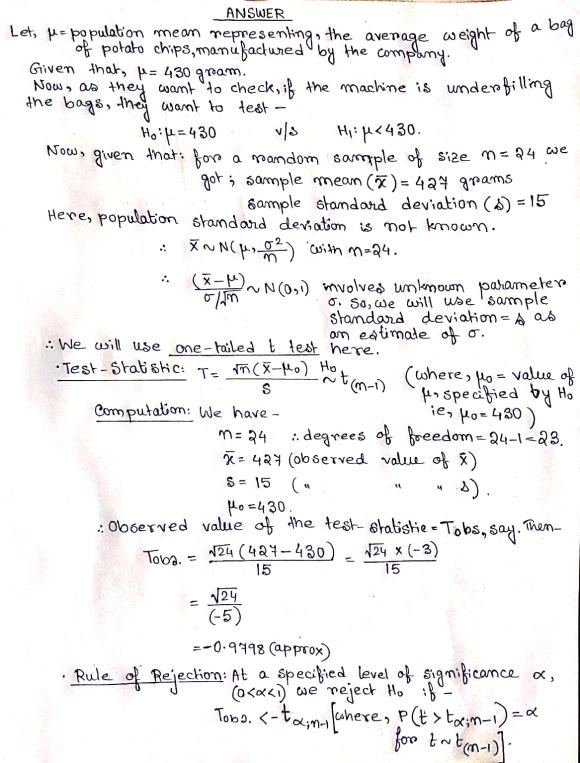 ANSWER
Let, μ = population mean representing, the average weight of a bag
of potato chips, manufactured by the company.
Given that, μ = 430 gram.
Now, as they want to check, if the machine is underfilling
the bags, they want to test -
H₀: μ = 430 v/s H₁: μ < 430.
Now, given that: for a random sample of size n = 24 we
got; sample mean (x̄) = 427 grams
sample standard deviation (s) = 15
Here, population standard deviation is not known.
∴ x̄ ~ N(μ, σ²/n) with n=24.
∴ (x̄-μ)/(σ/√n) ~ N(0,1) involves unknown parameter
σ. So, we will use sample
standard deviation = s as
an estimate of σ.
∴ We will use one-tailed t test here.
• Test-Statistic: T = √n(x̄-μ₀)/s ~ᴴ⁰ t(n-1) (where, μ₀ = value of
μ, specified by H₀
ie, μ₀ = 430)
Computation: We have -
n = 24 ∴ degrees of freedom = 24-1 = 23.
x̄ = 427 (observed value of x̄)
s = 15 ( " " " s).
μ₀ = 430.
∴ Observed value of the test-statistic = Tobs, say. Then-
Tobs. = √24 (427-430)/15 = √24 × (-3)/15
= √24/(-5)
= -0.9798 (approx)
• Rule of Rejection: At a specified level of significance α,
(0<α<1) we reject H₀ if -
Tobs. < -tα;n-1 [where, P(t > tα;n-1) = α
for t ~ t(n-1)].